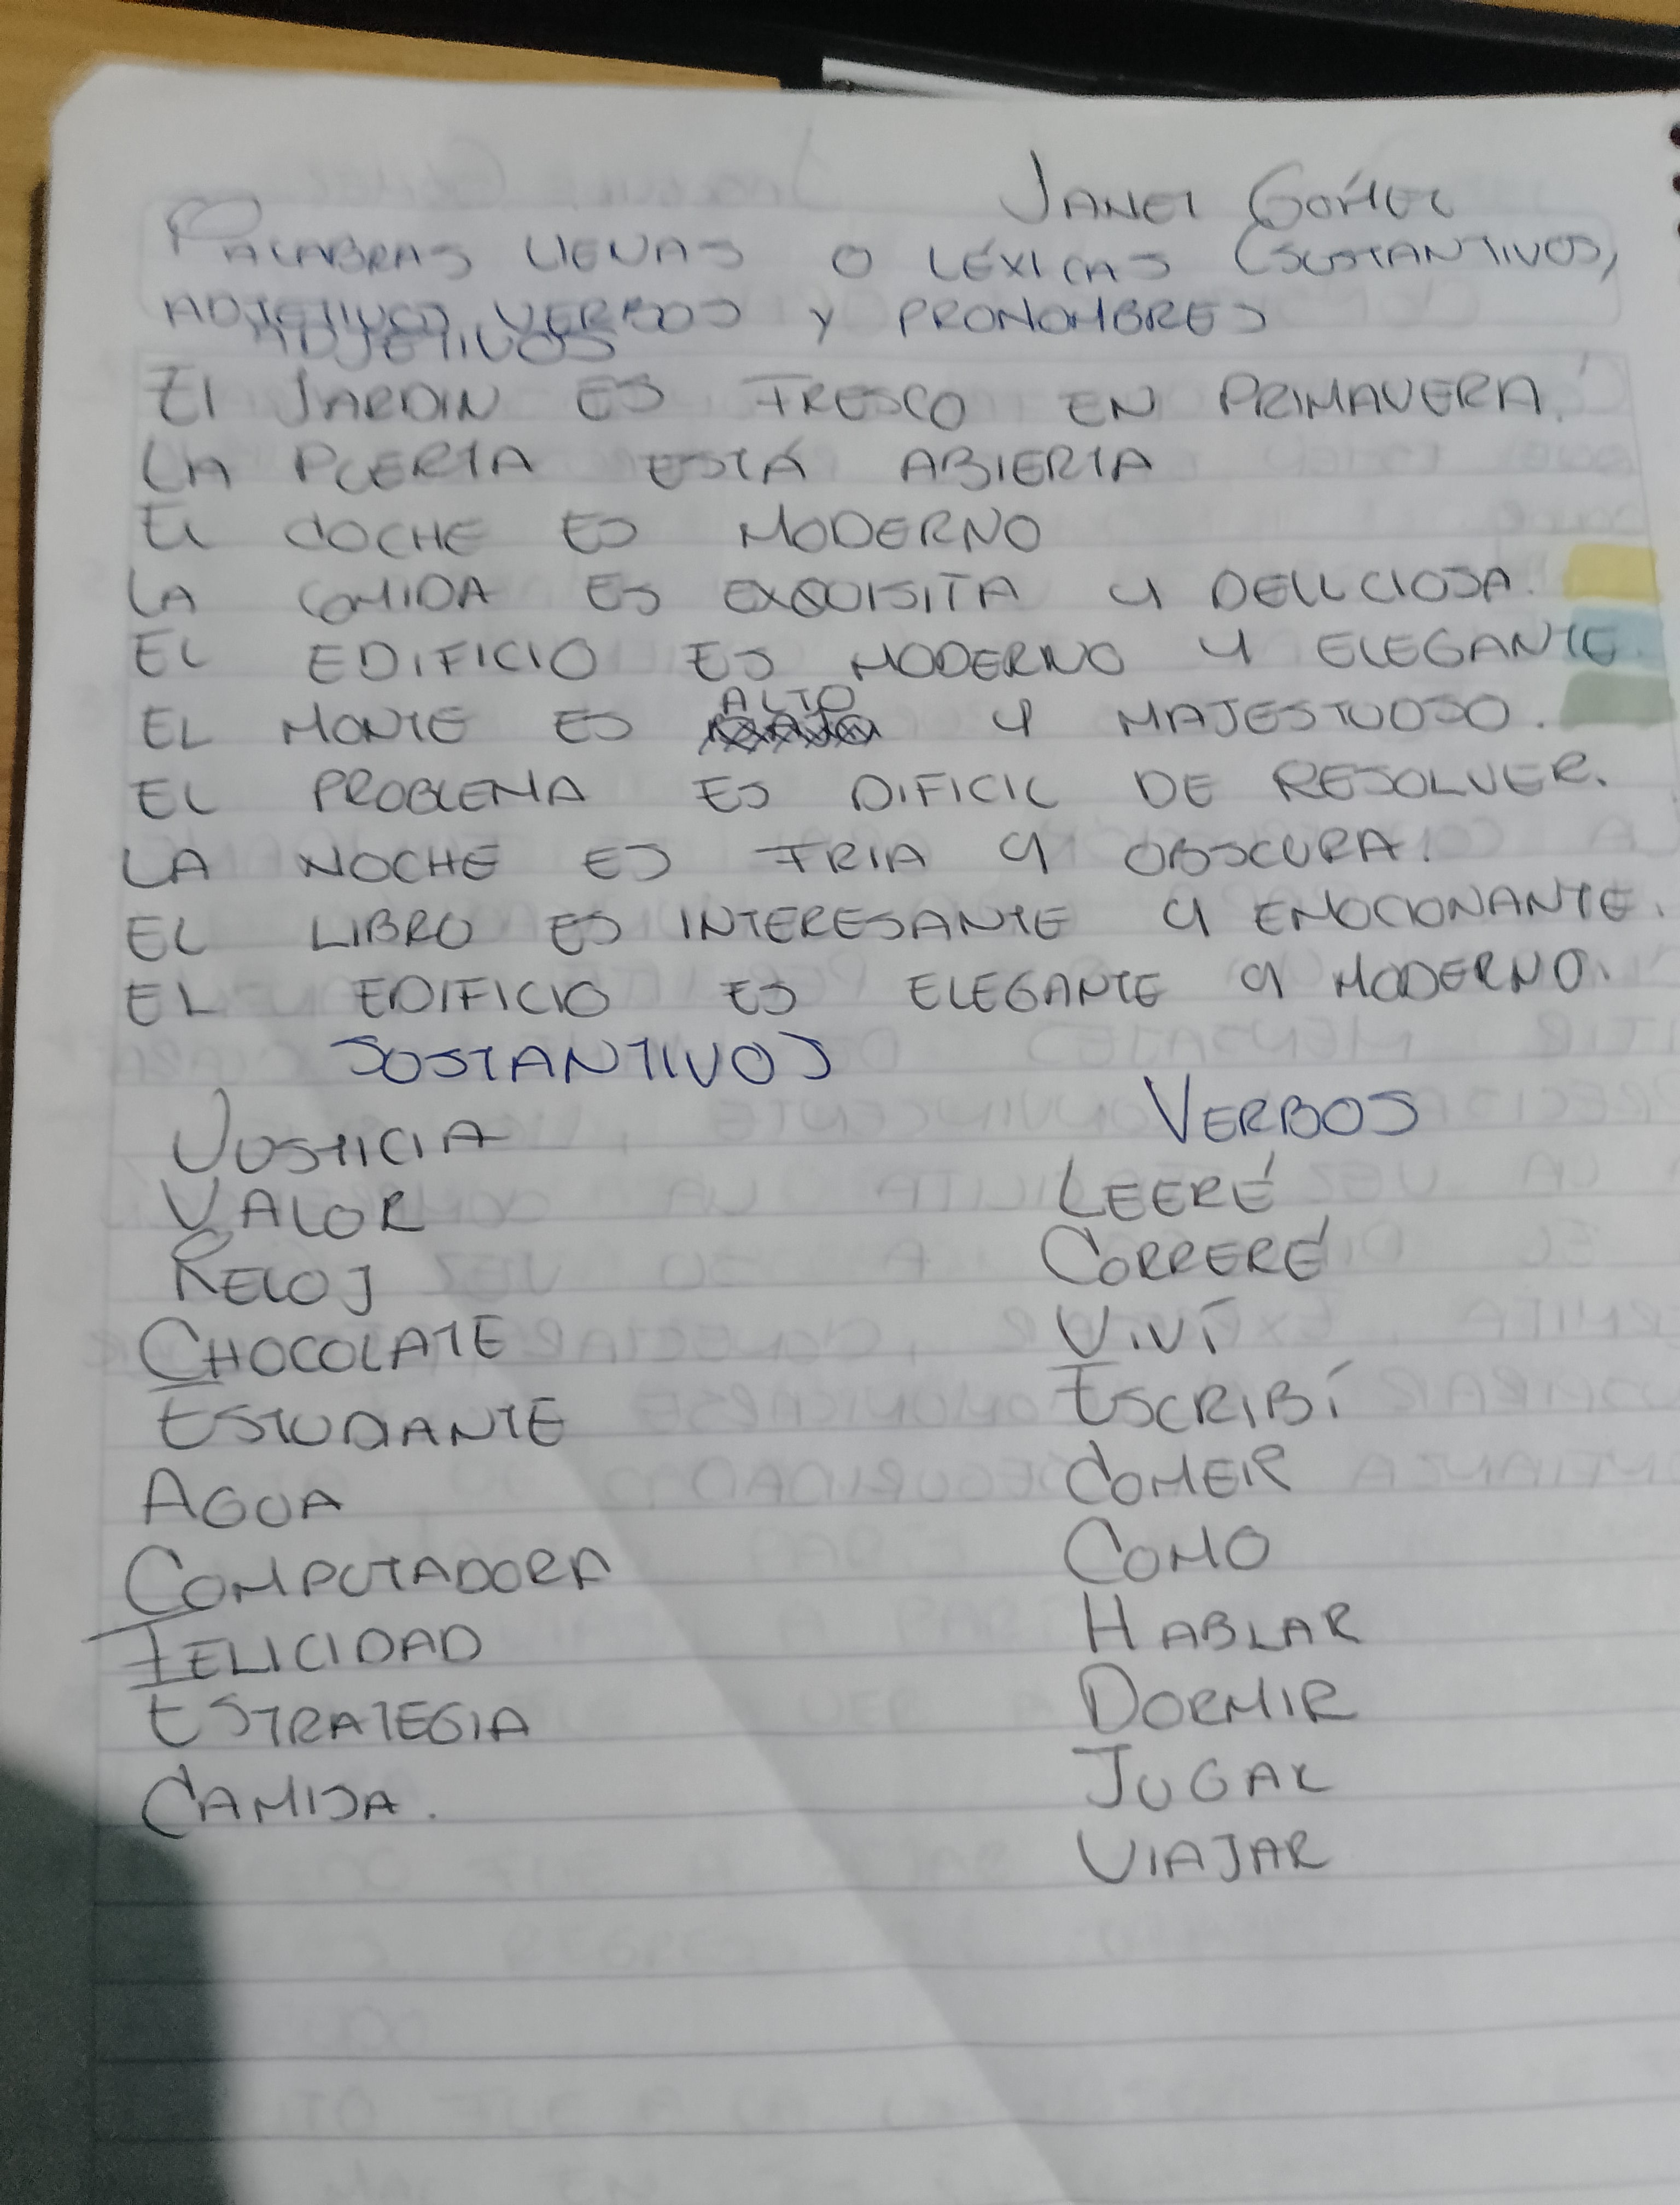 JANET GÓMEZ
PALABRAS LLENAS O LÉXICAS (SUSTANTIVOS,
ADJETIVOS VERBOS Y PRONOMBRES
ADJETIVOS
El JARDIN ES FRESCO EN PRIMAVERA.
LA PUERTA ESTÁ ABIERTA
EL COCHE ES MODERNO
LA COMIDA ES EXQUISITA Y DELICIOSA.
EL EDIFICIO ES MODERNO Y ELEGANTE
EL MONTE ES ALTO Y MAJESTUOSO.
EL PROBLEMA ES DIFICIL DE RESOLVER.
LA NOCHE ES FRIA Y OBSCURA.
EL LIBRO ES INTERESANTE Y EMOCIONANTE.
EL EDIFICIO ES ELEGANTE Y MODERNO.
SUSTANTIVOS
JUSTICIA
VALOR
RELOJ
CHOCOLATE
ESTUDIANTE
AGUA
COMPUTADORA
FELICIDAD
ESTRATEGIA
CAMISA.
VERBOS
LEERÉ
CORRERÉ
VIVÍ
ESCRIBÍ
COMER
COMO
HABLAR
DORMIR
JUGAR
VIAJAR